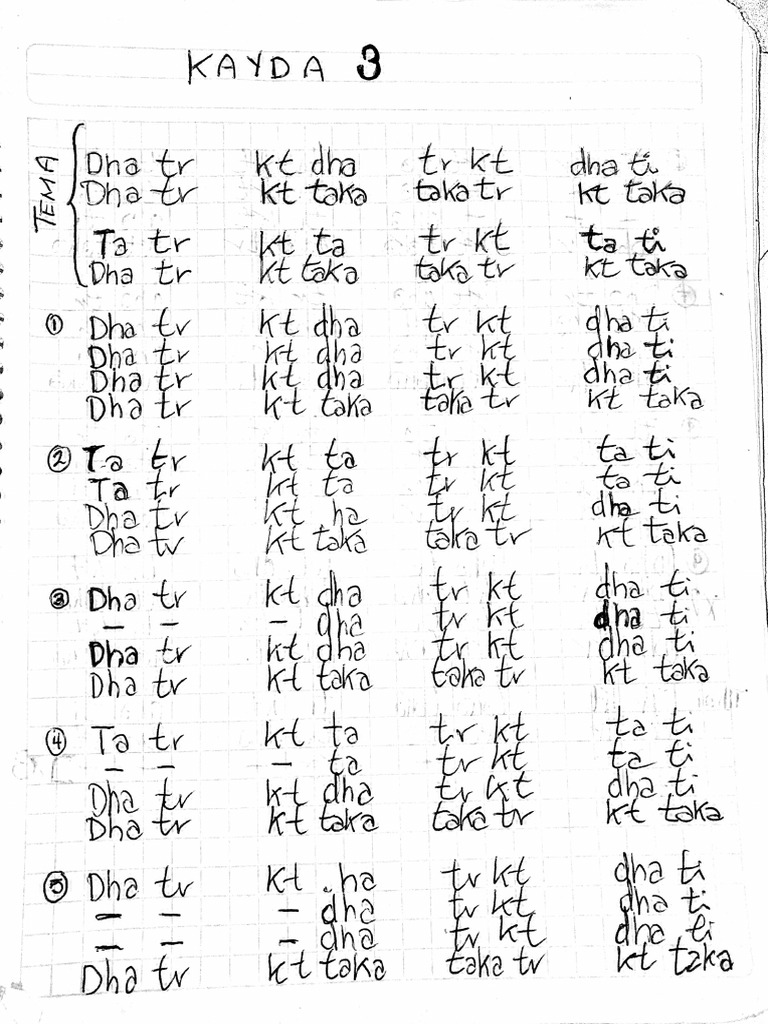 KAYDA 3
TEMA
Dha tr kt dha tr kt dha ti
Dha tr kt taka taka tr kt taka
Ta tr kt ta tr kt ta ti
Dha tr kt taka taka tr kt taka
① Dha tr kt dha tr kt dha ti
Dha tr kt dha tr kt dha ti
Dha tr kt dha tr kt dha ti
Dha tr kt taka taka tr kt taka
② Ta tr kt ta tr kt ta ti
Ta tr kt ta tr kt ta ti
Dha tr kt ha tr kt dha ti
Dha tr kt taka taka tr kt taka
③ Dha tr kt dha tr kt dha ti
– – – dha tr kt dha ti
Dha tr kt dha tr kt dha ti
Dha tr kt taka taka tr kt taka
④ Ta tr kt ta tr kt ta ti
– – – ta tr kt ta ti
Dha tr kt dha tr kt dha ti
Dha tr kt taka taka tr kt taka
⑤ Dha tr kt .ha tr kt dha ti
– – – dha tr kt dha ti
– – – dha tr kt dha ti
Dha tr kt taka taka tr kt taka